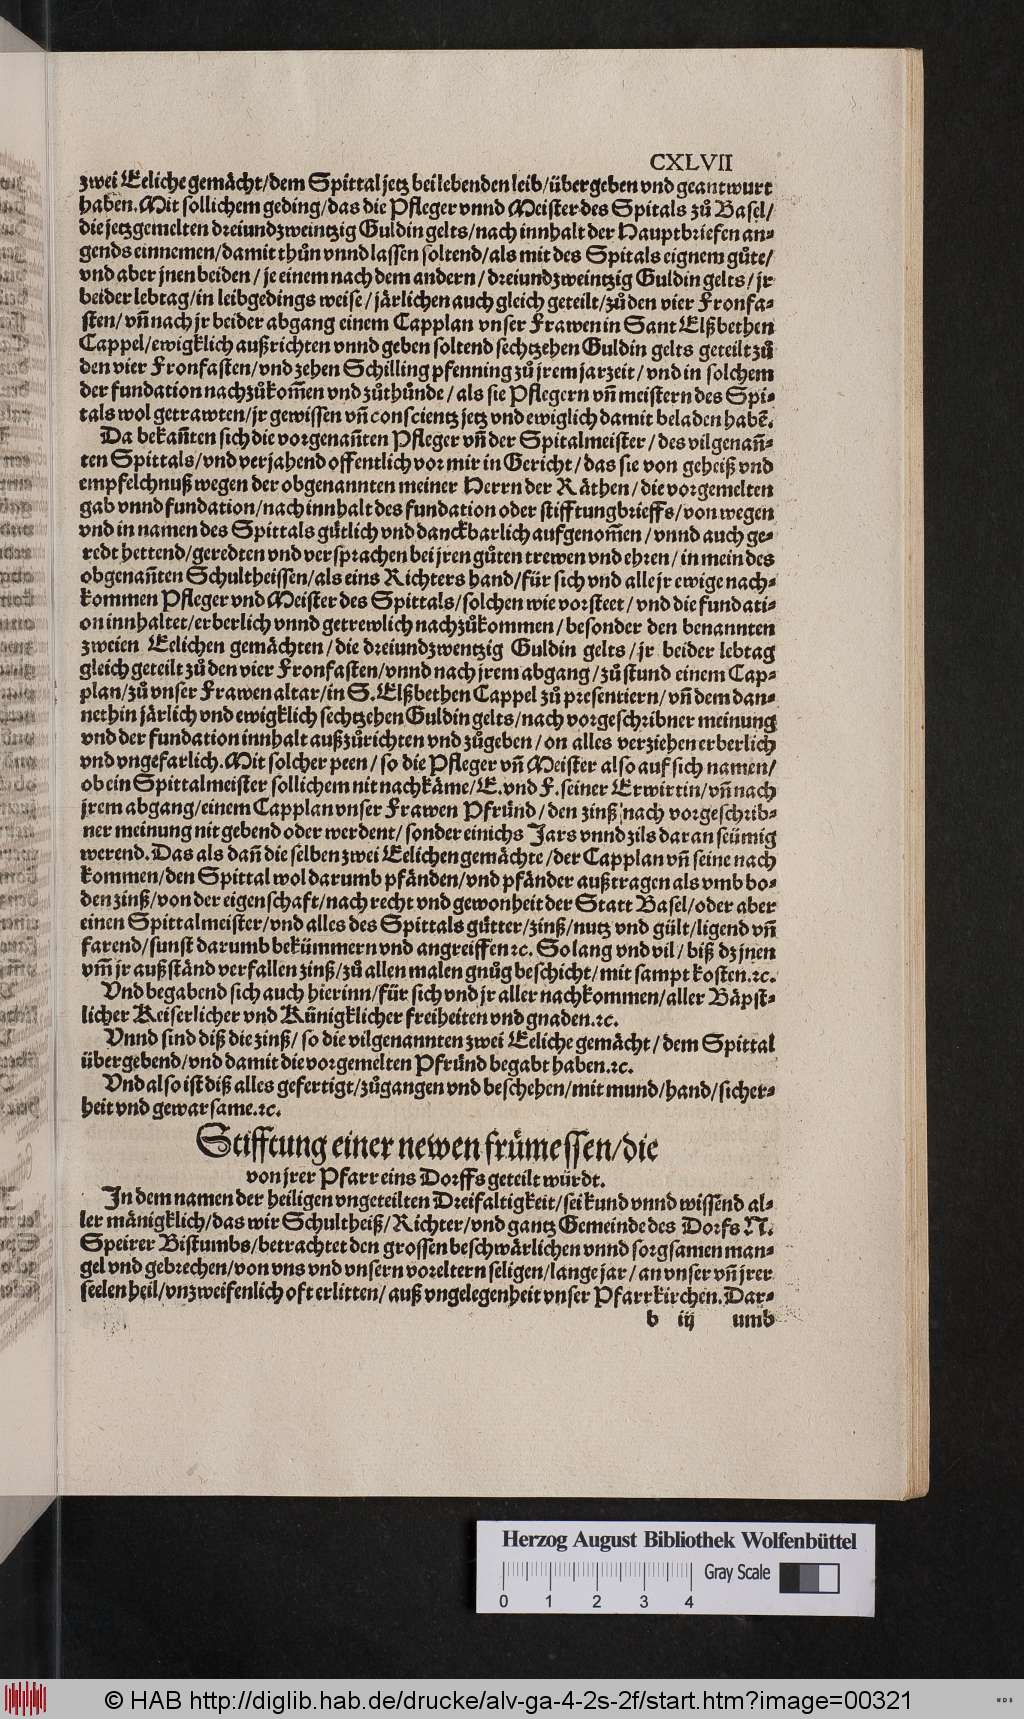 CXLVII
zwei Eeliche gemächt/dem Spittal jetz bei lebenden leib/übergeben vnd geantwurt
haben. Mit sollichem geding/das die Pfleger vnnd Meister des Spitals zů Basel/
die jetzgemelten dreiundzweintzig Guldin gelts/nach innhalt der Hauptbriefen an-
gends einnemen/damit thůn vnnd lassen soltend/als mit des Spitals eignem gůte/
vnd aber jnen beiden/je einem nach dem andern/dreiundzweintzig Guldin gelts/jr
beider lebtag/in leibgedings weise/järlichen auch gleich geteilt/zů den vier Fronfa-
sten/vñ nach jr beider abgang einem Capplan vnser Frawen in Sant Elßbethen
Cappel/ewigklich außrichten vnnd geben soltend sechtzehen Guldin gelts geteilt zů
den vier Fronfasten/vnd zehen Schilling pfenning zů jrem jarzeit/vnd in solchem
der fundation nachzůkom̃en vnd zůthůnde/als sie Pflegern vñ meistern des Spi-
tals wol getrawten/jr gewissen vñ conscientz jetz vnd ewiglich damit beladen habẽ.
Da bekañten sich die vorgenañten Pfleger vñ der Spitalmeister/des vilgenañ-
ten Spittals/vnd verjahend offentlich vor mir in Gericht/das sie von geheiß vnd
empfelchnuß wegen der obgenannten meiner Herrn der Räthen/die vorgemelten
gab vnnd fundation/nach innhalt des fundation oder stifftungbrieffs/von wegen
vnd in namen des Spittals gütlich vnd danckbarlich aufgenom̃en/vnnd auch ge-
redt hettend/geredten vnd versprachen bei jren gůten trewen vnd ehren/in mein des
obgenañten Schultheissen/als eins Richters hand/für sich vnd alle jr ewige nach-
kommen Pfleger vnd Meister des Spittals/solchen wie vorsteet/vnd die fundati-
on innhaltet/erberlich vnnd getrewlich nachzůkommen/besonder den benannten
zweien Eelichen gemächten/die dreiundzwentzig Guldin gelts/jr beider lebtag
gleich geteilt zů den vier Fronfasten/vnnd nach jrem abgang/zůstund einem Cap-
plan/zů vnser Frawen altar/in S. Elßbethen Cappel zů presentiern/vñ dem dan-
nethin järlich vnd ewigklich sechtzehen Guldin gelts/nach vorgeschribner meinung
vnd der fundation innhalt außzůrichten vnd zůgeben/on alles verziehen erberlich
vnd vngefarlich. Mit solcher peen/so die Pfleger vñ Meister also auf sich namen/
ob ein Spittalmeister sollichem nit nachkäme/E. vnd F. seiner Erwirtin/vñ nach
jrem abgang/einem Capplan vnser Frawen Pfründ/den zinß nach vorgeschrib-
ner meinung nit gebend oder werdent/sonder einichs Jars vnnd zils daran seümig
werend. Das als dañ die selben zwei Eelichen gemächte/der Capplan vñ seine nach
kommen/den Spittal wol darumb pfänden/vnd pfänder außtragen als vmb bo-
den zinß/von der eigenschaft/nach recht vnd gewonheit der Statt Basel/oder aber
einen Spittalmeister/vnd alles des Spittals gütter/zinß/nutz vnd gült/ligend vñ
farend/sunst darumb bekümmern vnd angreiffen ꝛc. So lang vnd vil/biß dz jnen
vm̃ jr außständ verfallen zinß/zů allen malen gnůg beschicht/mit sampt kosten. ꝛc.
Vnd begabend sich auch hierinn/für sich vnd jr aller nachkommen/aller Bäpst-
licher Keiserlicher vnd Künigklicher freiheiten vnd gnaden. ꝛc.
Vnnd sind diß die zinß/so die vilgenannten zwei Eeliche gemächt/dem Spittal
übergebend/vnd damit die vorgemelten Pfründ begabt haben. ꝛc.
Vnd also ist diß alles gefertigt/zůgangen vnd beschehen/mit mund/hand/sicher-
heit vnd gewarsame. ꝛc.
Stifftung einer newen frümessen/die
von jrer Pfarr eins Dorffs geteilt würdt.
In dem namen der heiligen vngeteilten Dreifaltigkeit/sei kund vnnd wissend al-
ler mänigklich/das wir Schultheiß/Richter/vnd gantz Gemeinde des Dorfs N.
Speirer Bistumbs/betrachtet den grossen beschwärlichen vnnd sorgsamen man-
gel vnd gebrechen/von vns vnd vnsern voreltern seligen/lange jar/an vnser vñ jrer
seelen heil/vnzweifenlich oft erlitten/auß vngelegenheit vnser Pfarrkirchen. Dar-
b iij umb
Herzog August Bibliothek Wolfenbüttel
Gray Scale
0 1 2 3 4
© HAB http://diglib.hab.de/drucke/alv-ga-4-2s-2f/start.htm?image=00321